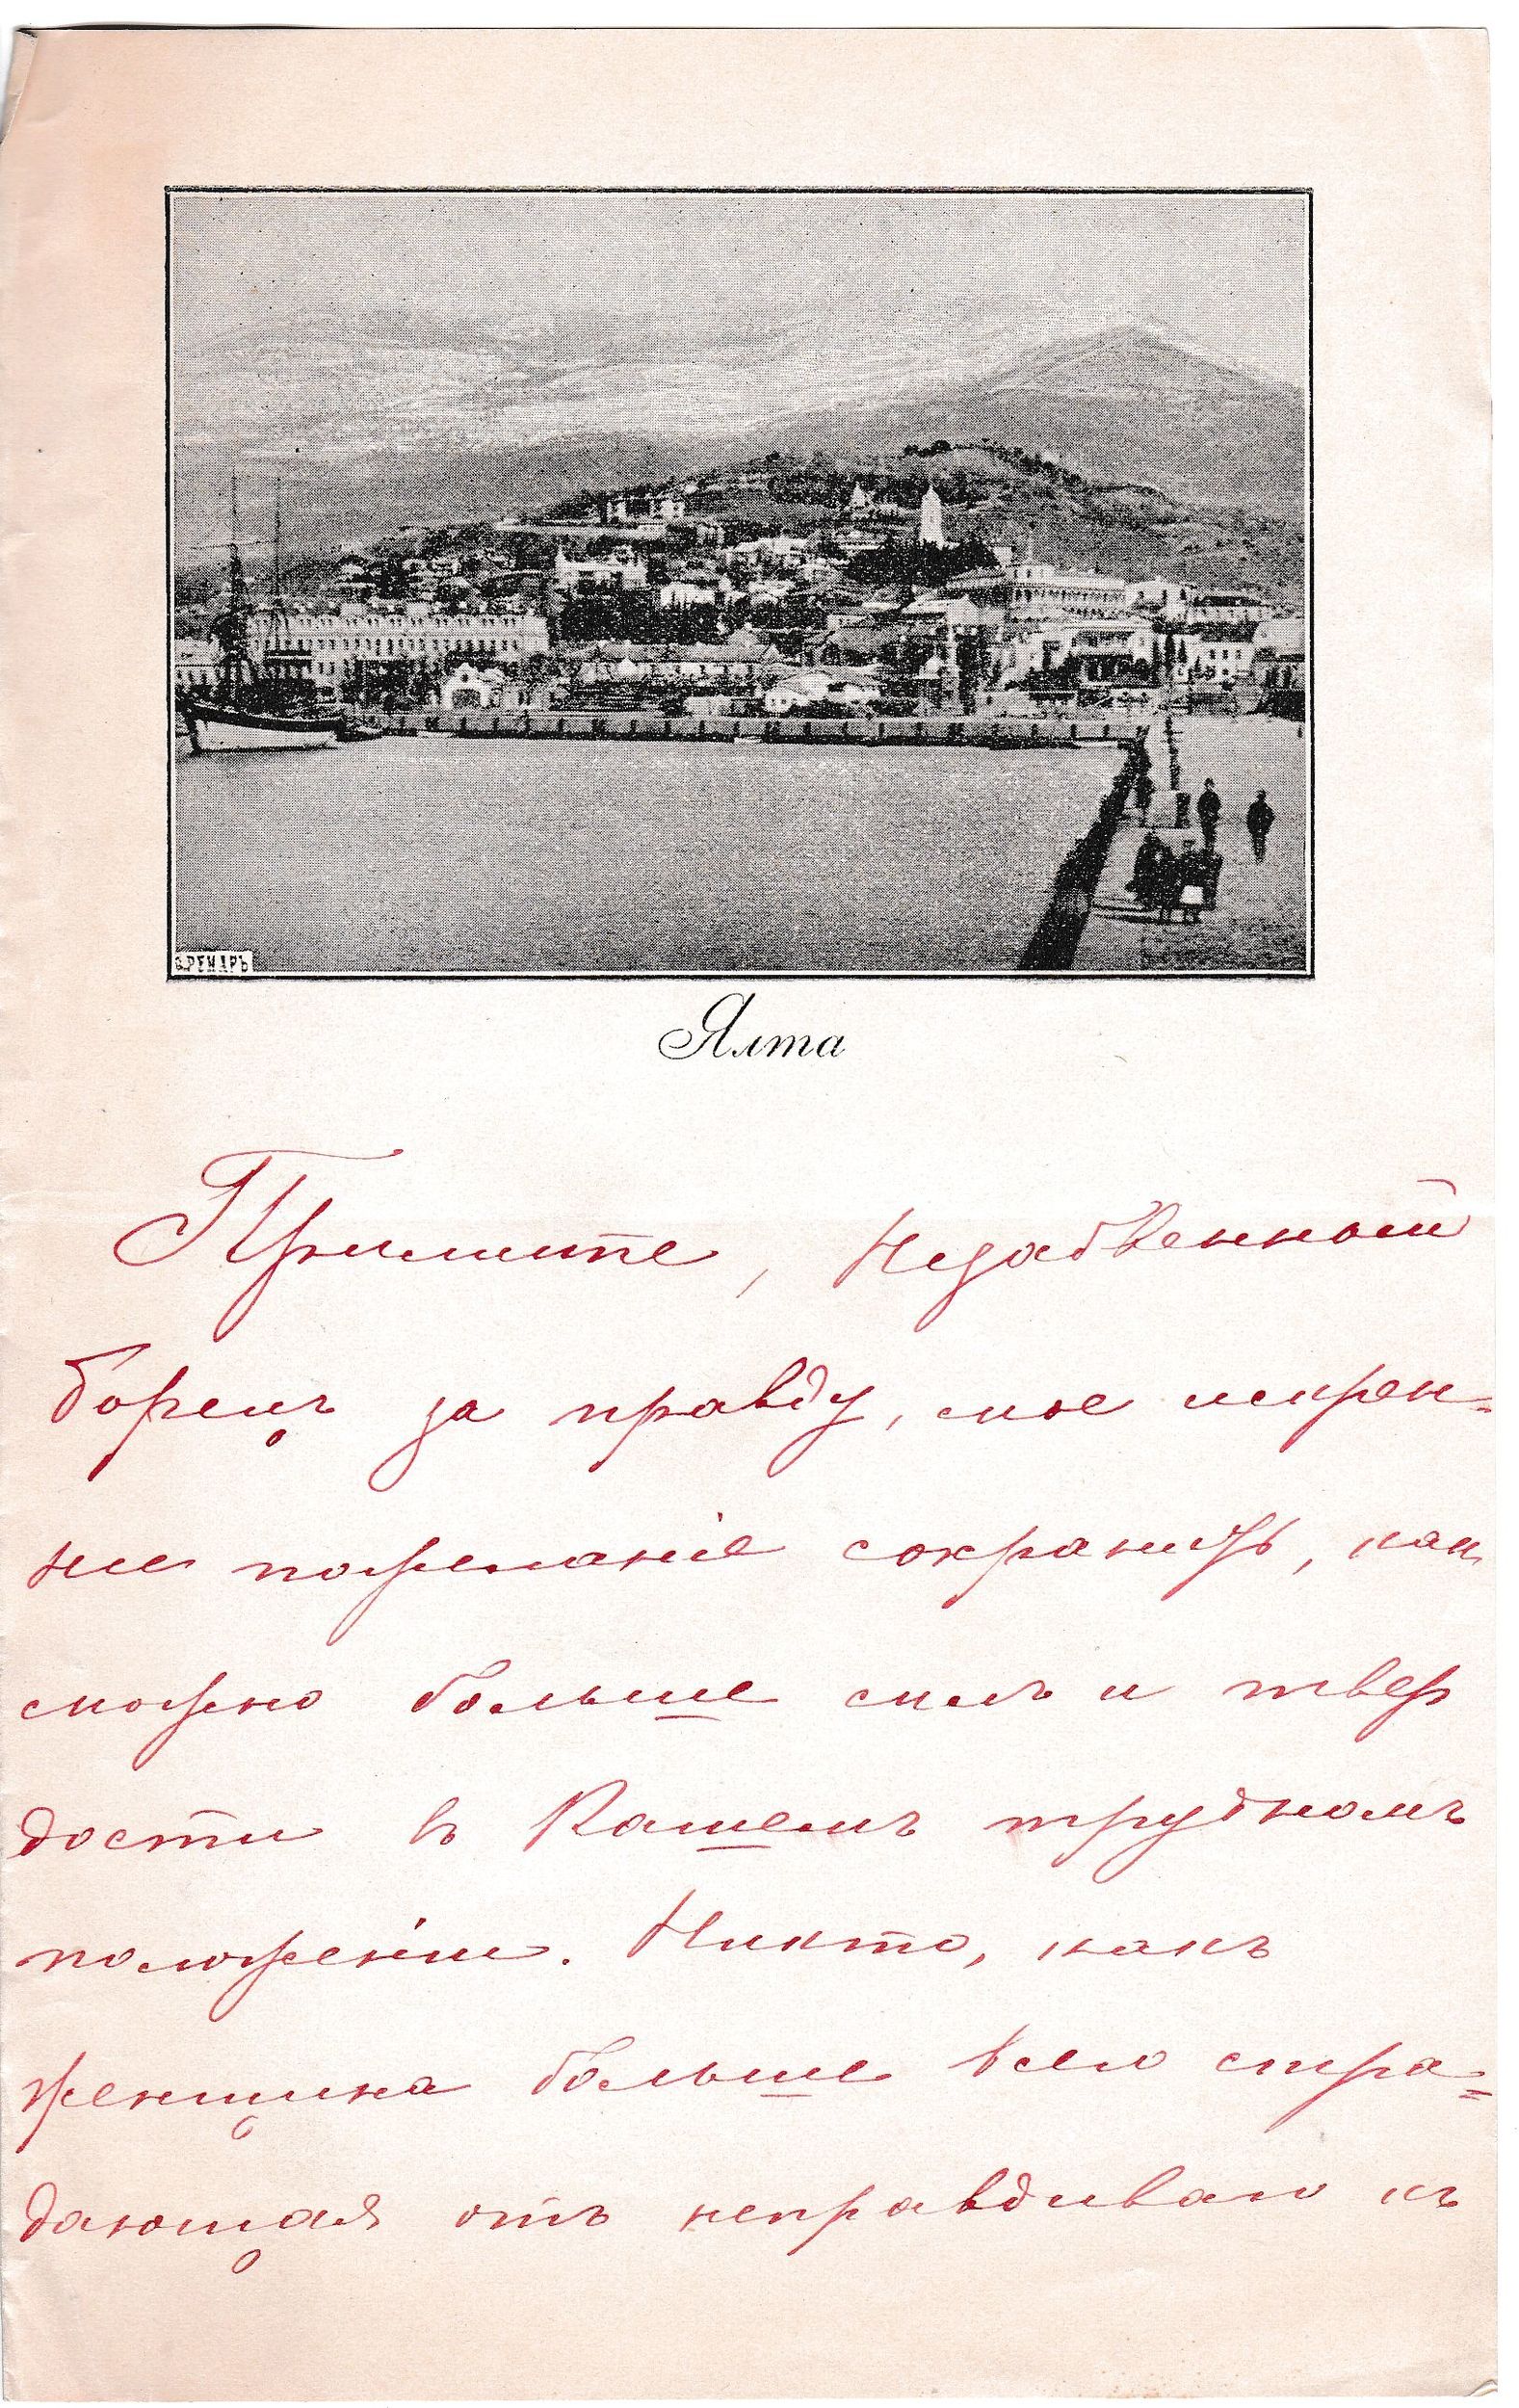 В.РЕНАРЪ
Ялта
Примите, Незабвенный
борецъ за правду, мое искрен-
нее пожеланіе сохранить, какъ
можно больше силъ и твер
дости въ Вашемъ трудномъ
положеніи. Никто, какъ
женщина больше всего стра=
дающая отъ неправдиваго къ